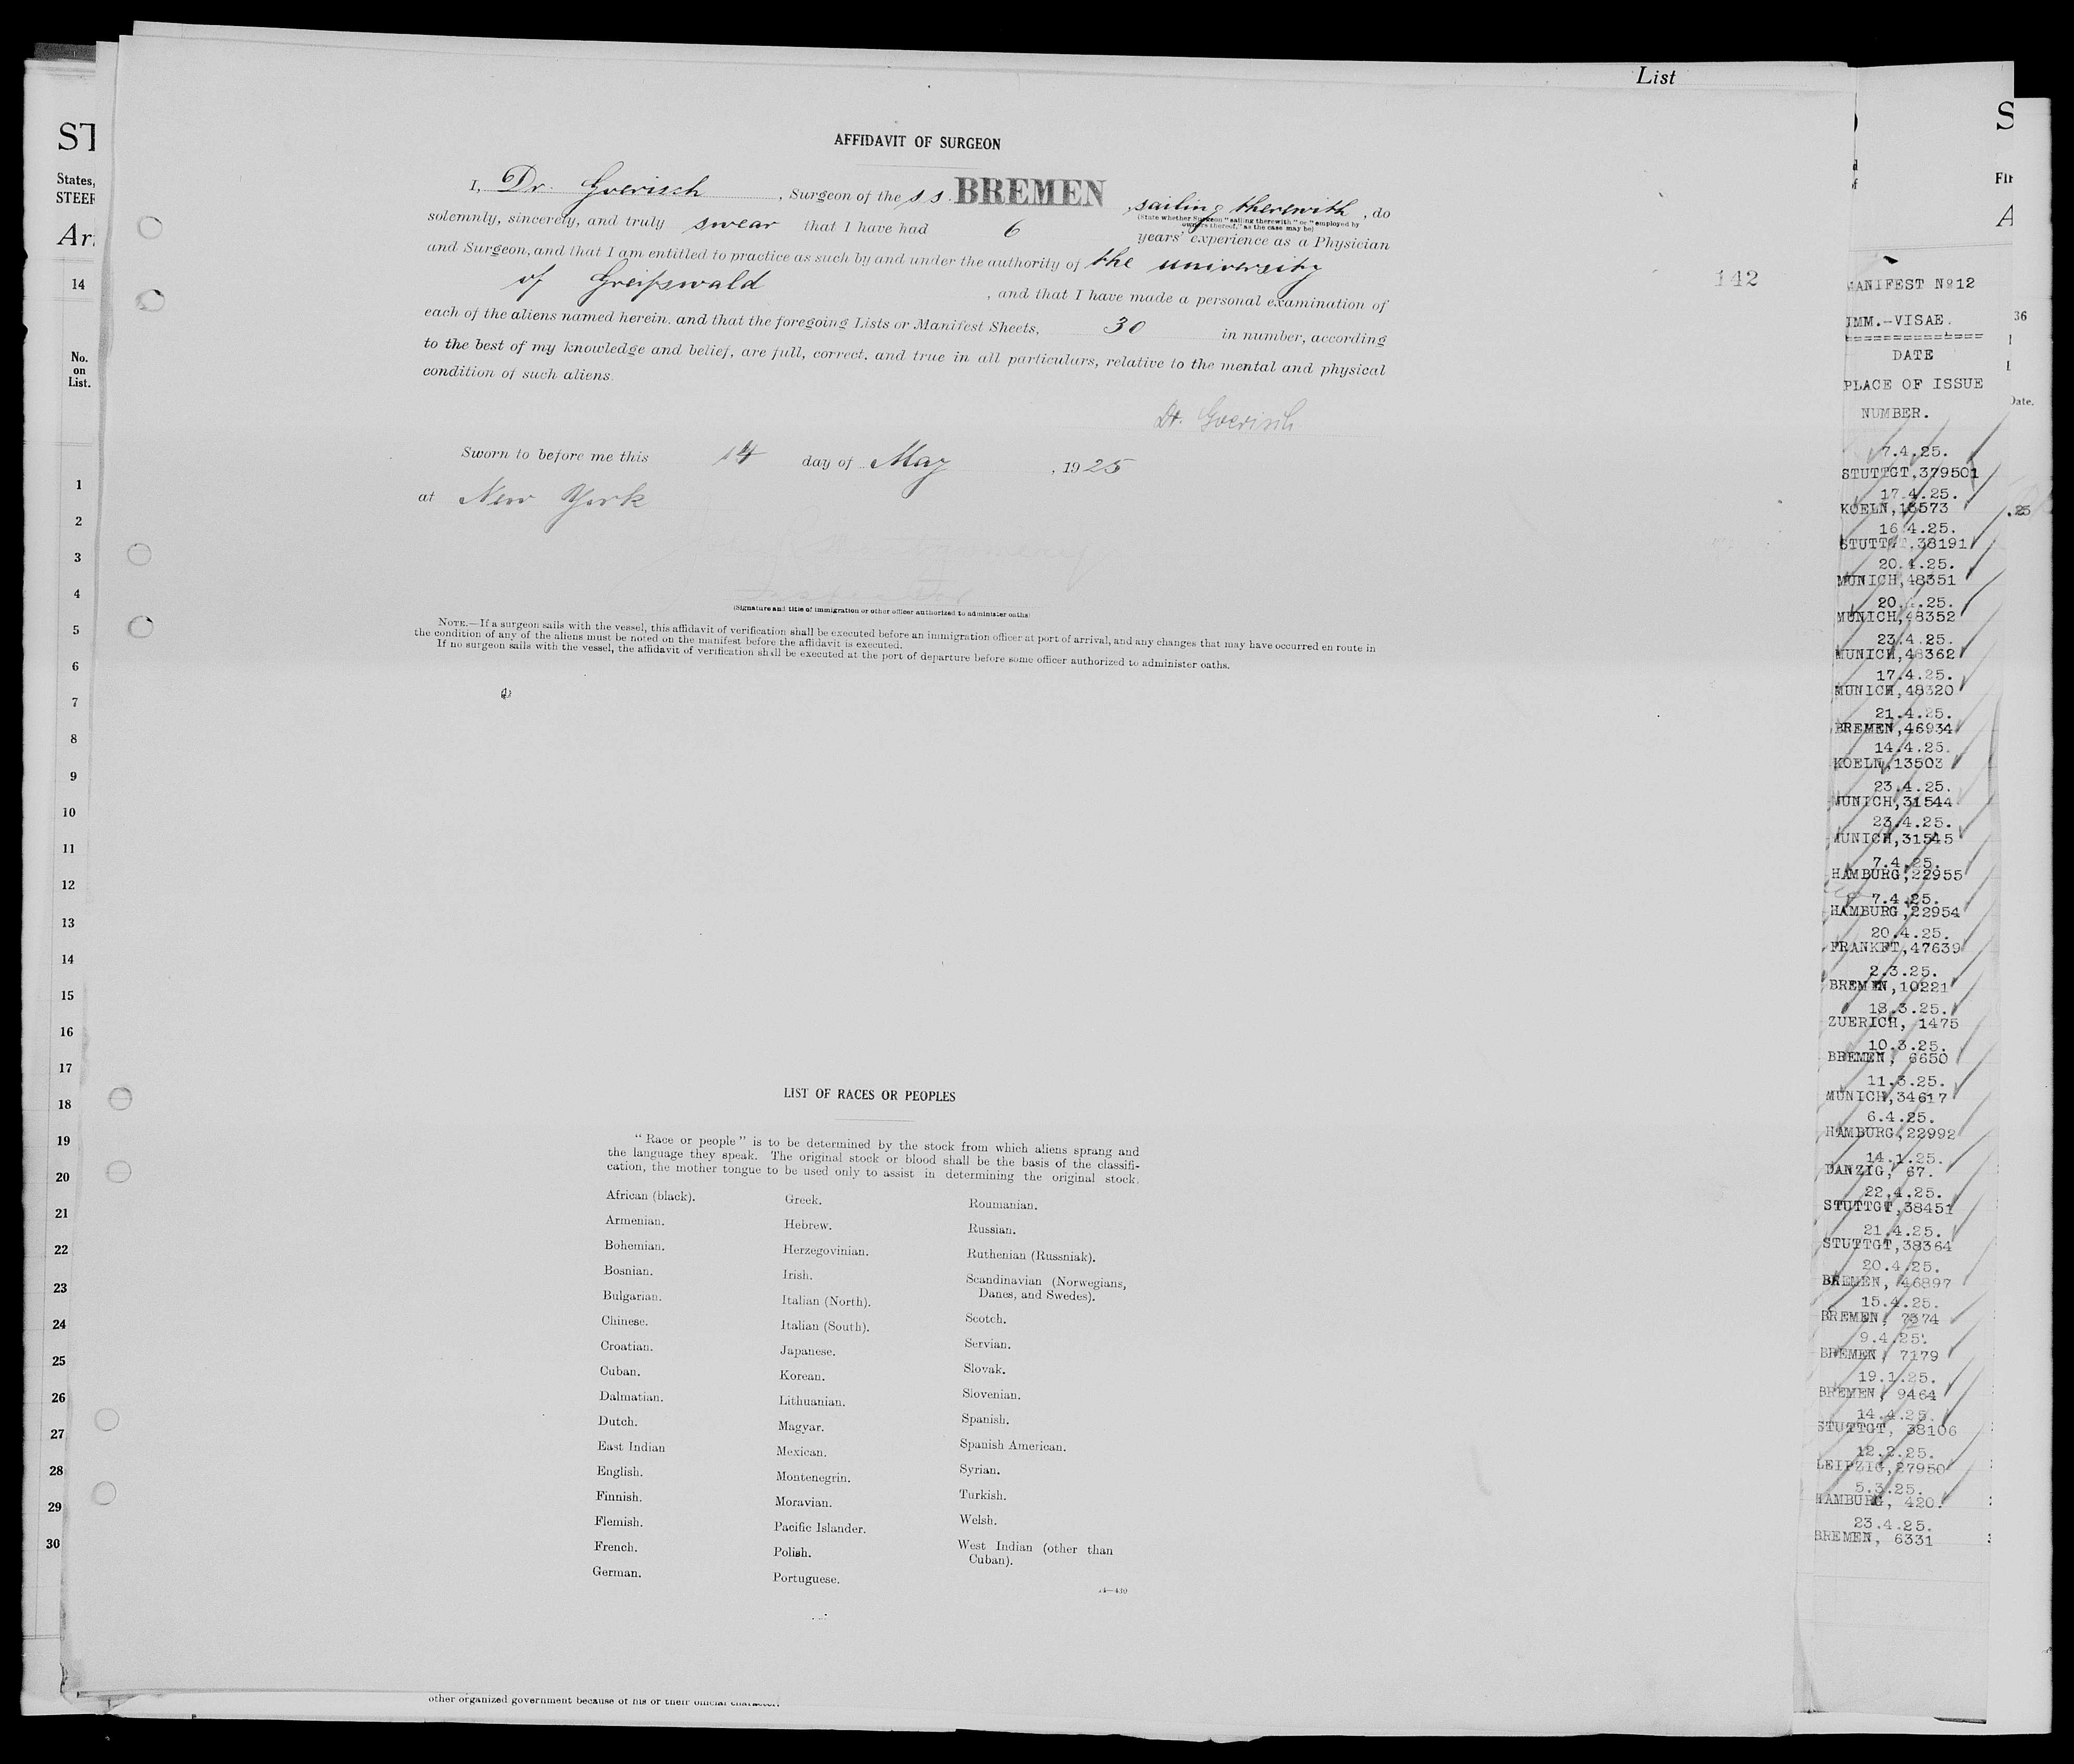 List
AFFIDAVIT OF SURGEON
I, Dr. Goerisch, Surgeon of the s s. BREMEN, sailing therewith, do
(State whether Surgeon "sailing therewith" or "employed by
owners thereof," as the case may be)
solemnly, sincerely, and truly swear that I have had 6 years' experience as a Physician
and Surgeon, and that I am entitled to practice as such by and under the authority of the university
of Greifswald, and that I have made a personal examination of
each of the aliens named herein. and that the foregoing Lists or Manifest Sheets, 30 in number, according
to the best of my knowledge and belief, are full, correct, and true in all particulars, relative to the mental and physical
condition of such aliens.
Dr. Goerisch
Sworn to before me this 14 day of May, 1925
at New York
(Signature and title of immigration or other officer authorized to administer oaths)
NOTE.—If a surgeon sails with the vessel, this affidavit of verification shall be executed before an immigration officer at port of arrival, and any changes that may have occurred en route in
the condition of any of the aliens must be noted on the manifest before the affidavit is executed.
If no surgeon sails with the vessel, the affidavit of verification shall be executed at the port of departure before some officer authorized to administer oaths.
142
LIST OF RACES OR PEOPLES
"Race or people" is to be determined by the stock from which aliens sprang and
the language they speak. The original stock or blood shall be the basis of the classifi-
cation, the mother tongue to be used only to assist in determining the original stock.
African (black).
Armenian.
Bohemian.
Bosnian.
Bulgarian.
Chinese.
Croatian.
Cuban.
Dalmatian.
Dutch.
East Indian
English.
Finnish.
Flemish.
French.
German.
Greek.
Hebrew.
Herzegovinian.
Irish.
Italian (North).
Italian (South).
Japanese.
Korean.
Lithuanian.
Magyar.
Mexican.
Montenegrin.
Moravian.
Pacific Islander.
Polish.
Portuguese.
Roumanian.
Russian.
Ruthenian (Russniak).
Scandinavian (Norwegians,
Danes, and Swedes).
Scotch.
Servian.
Slovak.
Slovenian.
Spanish.
Spanish American.
Syrian.
Turkish.
Welsh.
West Indian (other than
Cuban).
14—430
other organized government because of his or their official character.
ST
States,
STEER
Ar
14
No.
on
List.
1
2
3
4
5
6
7
8
9
10
11
12
13
14
15
16
17
18
19
20
21
22
23
24
25
26
27
28
29
30
MANIFEST No12
IMM.-VISAE.
==============
DATE
PLACE OF ISSUE
NUMBER.
7.4.25.
STUTTGT.379501
17.4.25.
KOELN,13573
16.4.25.
STUTTGT.38191
20.4.25.
MUNICH,48351
20.4.25.
MUNICH,48352
23.4.25.
MUNICH,48362
17.4.25.
MUNICH,48320
21.4.25.
BREMEN,46934
14.4.25.
KOELN,13503
23.4.25.
MUNICH,31544
23.4.25.
MUNICH,31545
7.4.25.
HAMBURG,22955
7.4.25.
HAMBURG,22954
20.4.25.
FRANKFT,47639
2.3.25.
BREMEN,10221
18.3.25.
ZUERICH, 1475
10.3.25.
BREMEN, 6650
11.3.25.
MUNICH,34617
6.4.25.
HAMBURG,22992
14.1.25.
DANZIG, 67.
22.4.25.
STUTTGT,38451
21.4.25.
STUTTGT,38364
20.4.25.
BREMEN, 46897
15.4.25.
BREMEN, 7374
9.4.25.
BREMEN, 7179
19.1.25.
BREMEN, 9464
14.4.25.
STUTTGT, 38106
12.2.25.
LEIPZIG,27950
5.3.25.
HAMBURG, 420.
23.4.25.
BREMEN, 6331
S
A
36
Date.
.25